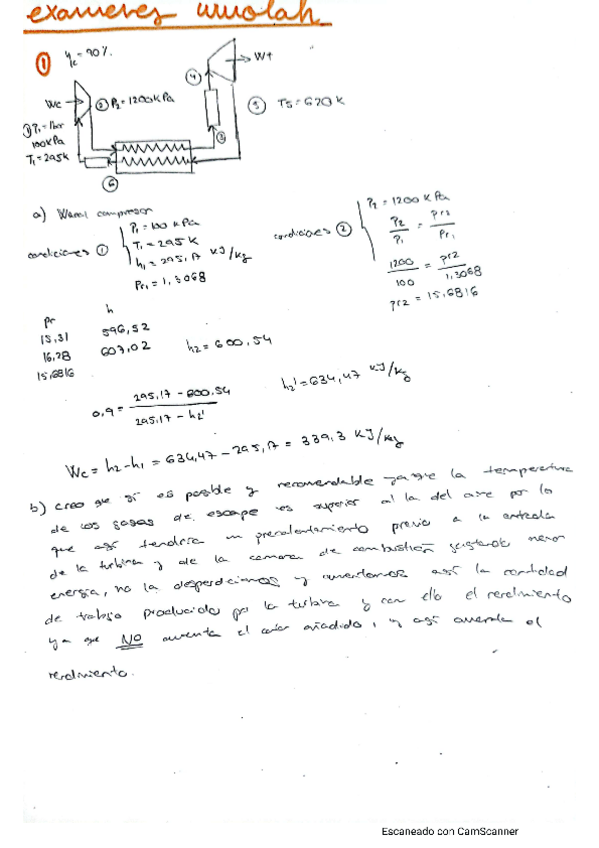 exámenes wuolah
① ηc = 90%.
Wc
② P2 = 1200 kPa
① P1 = 1bar
100 kPa
T1 = 295k
④
WT
⑤ T5 = 670 k
③
⑥
a) Wreal compresor
condiciones ①
P1 = 100 kPa
T1 = 295 K
h1 = 295,17 KJ/kg
Pr1 = 1,3068
condiciones ②
P2 = 1200 K Pa
P2/P1 = Pr2/Pr1
1200/100 = pr2/1,3068
pr2 = 15,6816
pr h
15,31 596,52
16,28 607,02
15,6816
h2 = 600,54
0,9 = 295,17 - 600,54 / 295,17 - h2'
h2' = 634,47 KJ/kg
Wc = h2 - h1 = 634,47 - 295,17 = 339,3 KJ/kg
b) creo que sí es posible y recomendable ya que la temperatura
de los gases de escape es superior al la del aire por lo
que así tendría un precalentamiento previo a la entrada
de la turbina y de la camara de combustión gastando menor
energía, no la desperdiciamos y aumentamos así la cantidad
de trabajo producido por la turbina y con ello el rendimiento
ya que NO aumenta el calor añadido, y así aumenta el
rendimiento.
Escaneado con CamScanner